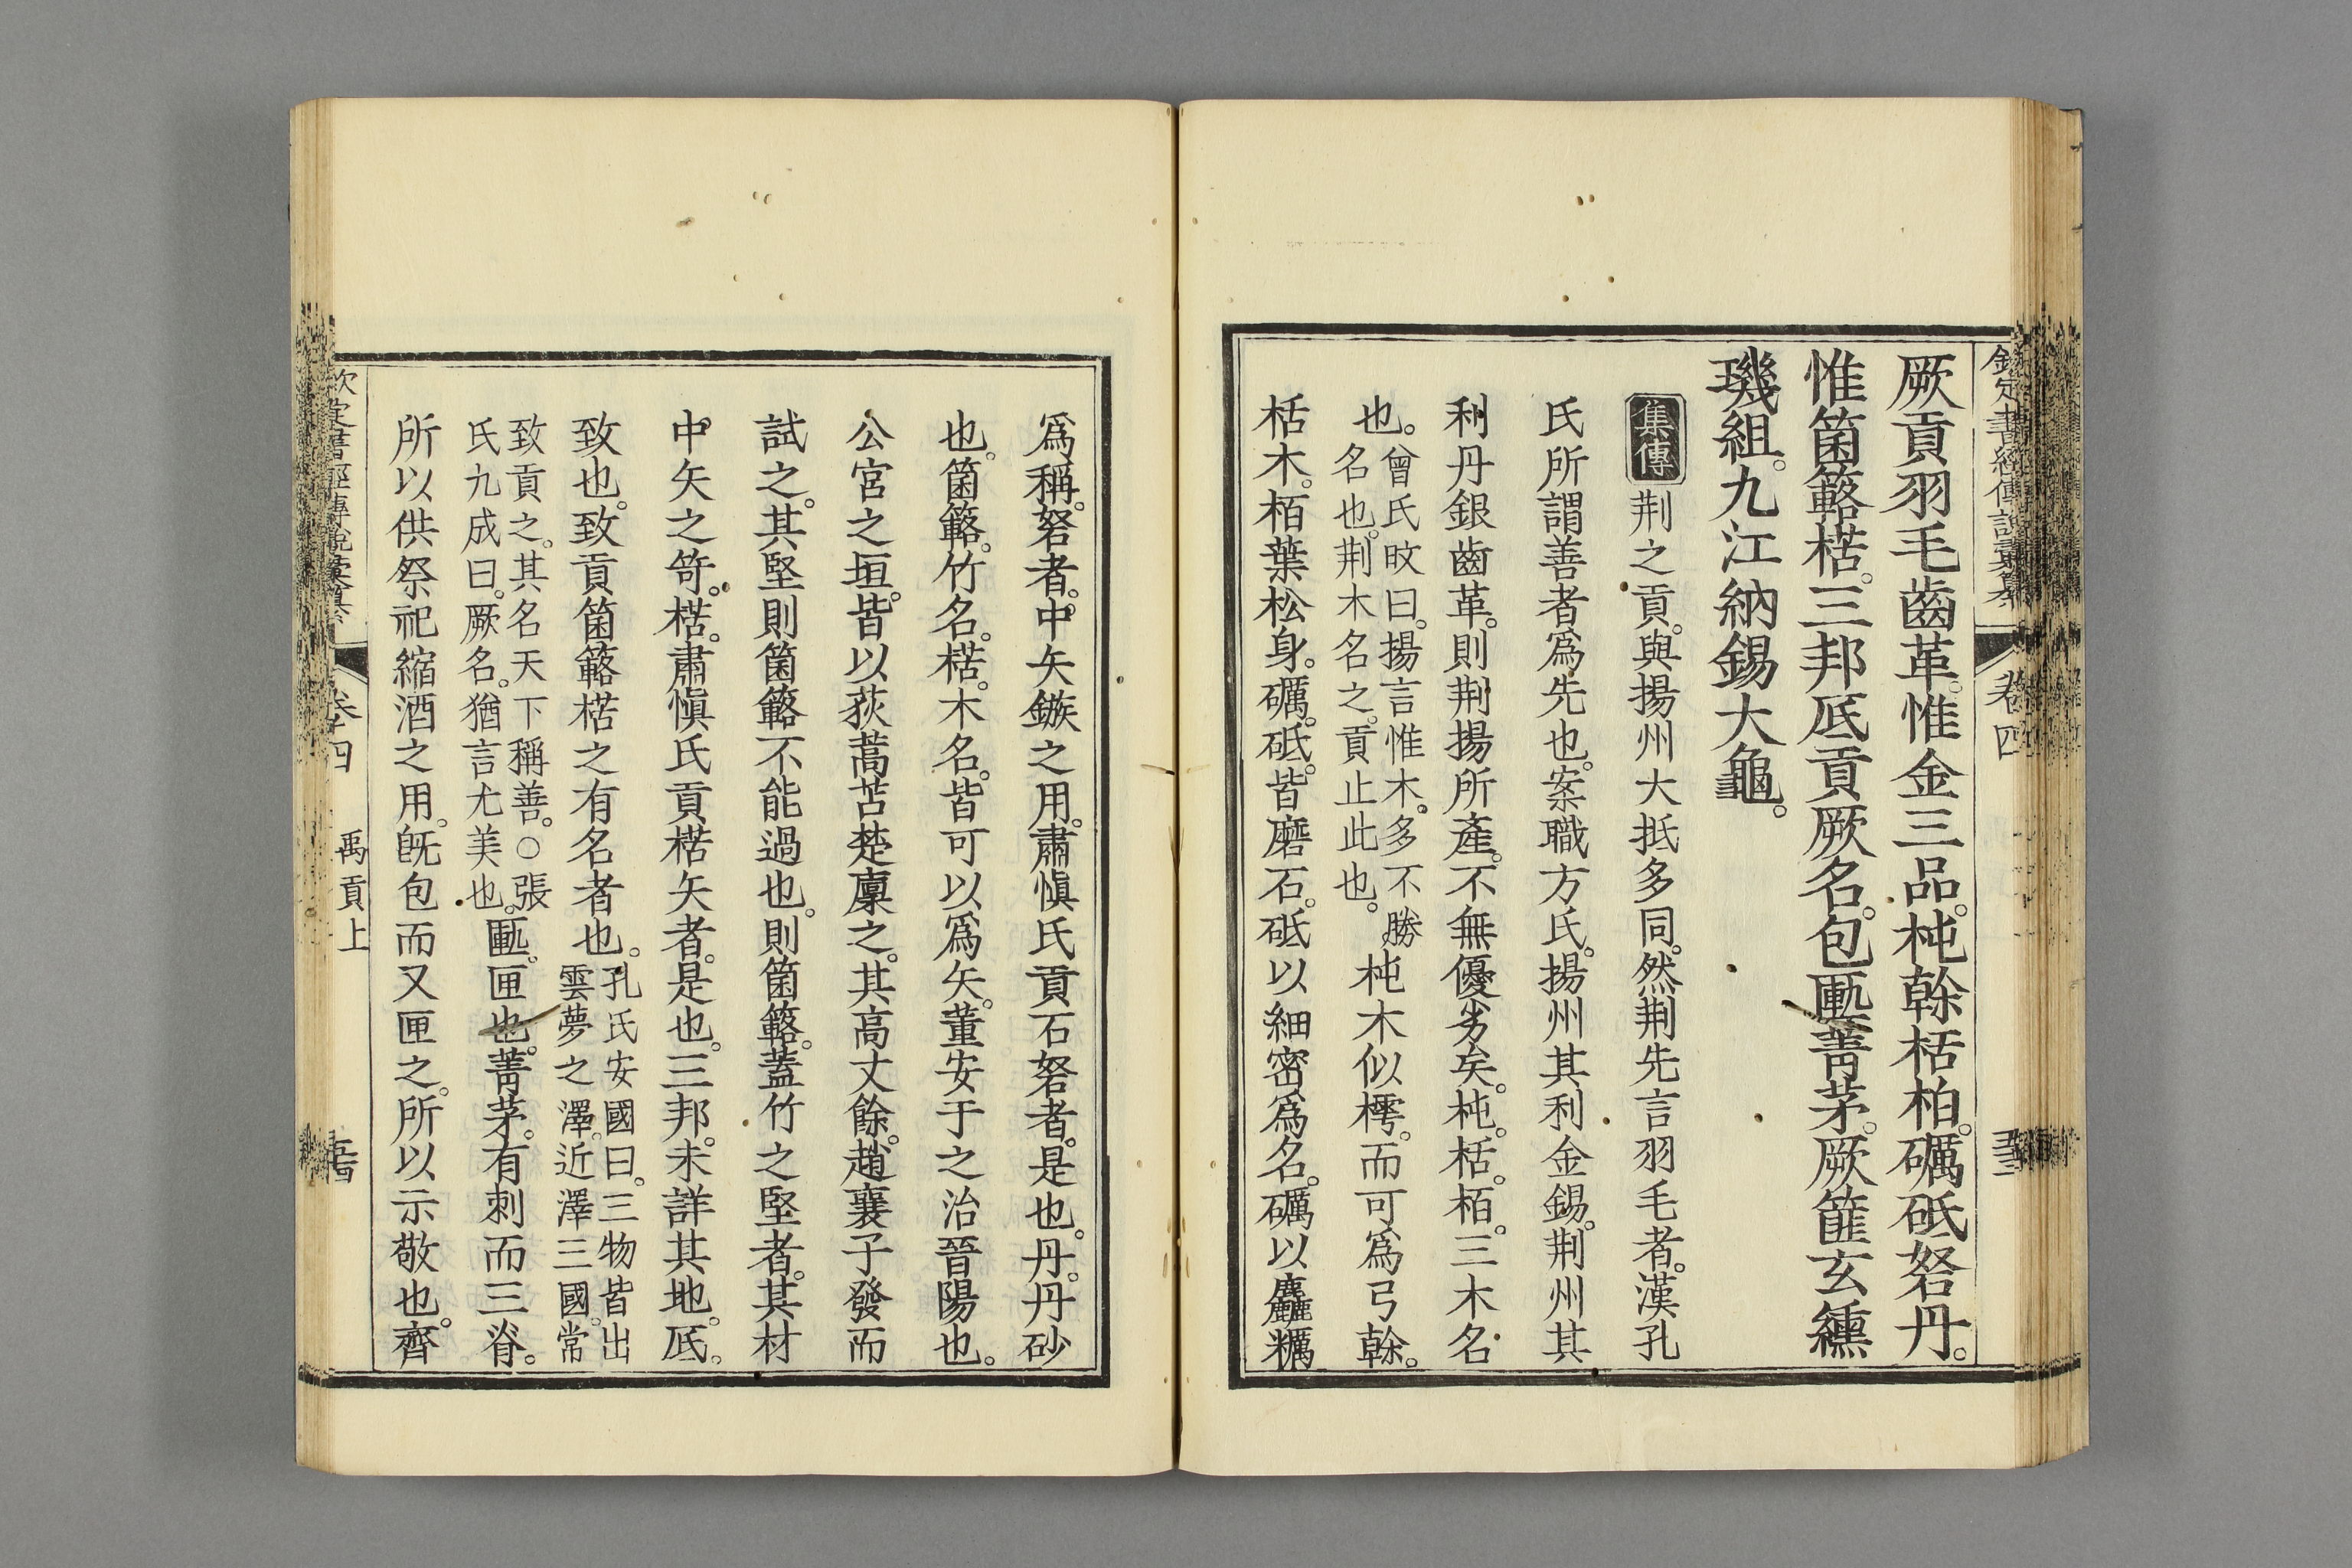 厥貢羽毛齒革。惟金三品。杶榦栝柏。礪砥砮丹。
惟箘簵楛。三邦厎貢厥名。包匭菁茅。厥篚玄纁
璣組。九江納錫大龜。
集傳 荆之貢。與揚州大抵多同。然荆先言羽毛者。漢孔
氏所謂善者爲先也。案職方氏。揚州其利金錫。荆州其
利丹銀齒革。則荆揚所產。不無優劣矣。杶。栝。栢。三木名
也。
曾氏旼曰。揚言惟木。多不勝
名也。荆木名之。貢止此也。
杶木似樗。而可爲弓榦。
栝木。栢葉松身。礪。砥。皆磨石。砥以細密爲名。礪以麤糲
爲稱。砮者。中矢鏃之用。肅愼氏貢石砮者。是也。丹。丹砂
也。箘簵。竹名。楛。木名。皆可以爲矢。董安于之治晉陽也。
公宮之垣。皆以荻蒿苫楚廩之。其高丈餘。趙襄子發而
試之。其堅則箘簵不能過也。則箘簵。蓋竹之堅者。其材
中矢之笴。楛。肅愼氏貢楛矢者。是也。三邦。未詳其地。厎。
致也。致貢箘簵楛之有名者也。
孔氏安國曰。三物皆出
雲夢之澤。近澤三國。常
致貢之。其名天下稱善。○張
氏九成曰。厥名。猶言尤美也。
匭。匣也。菁茅。有刺而三脊。
所以供祭祀縮酒之用。旣包而又匣之。所以示敬也。齊
欽定書經傳說彙纂
卷四
禹貢上